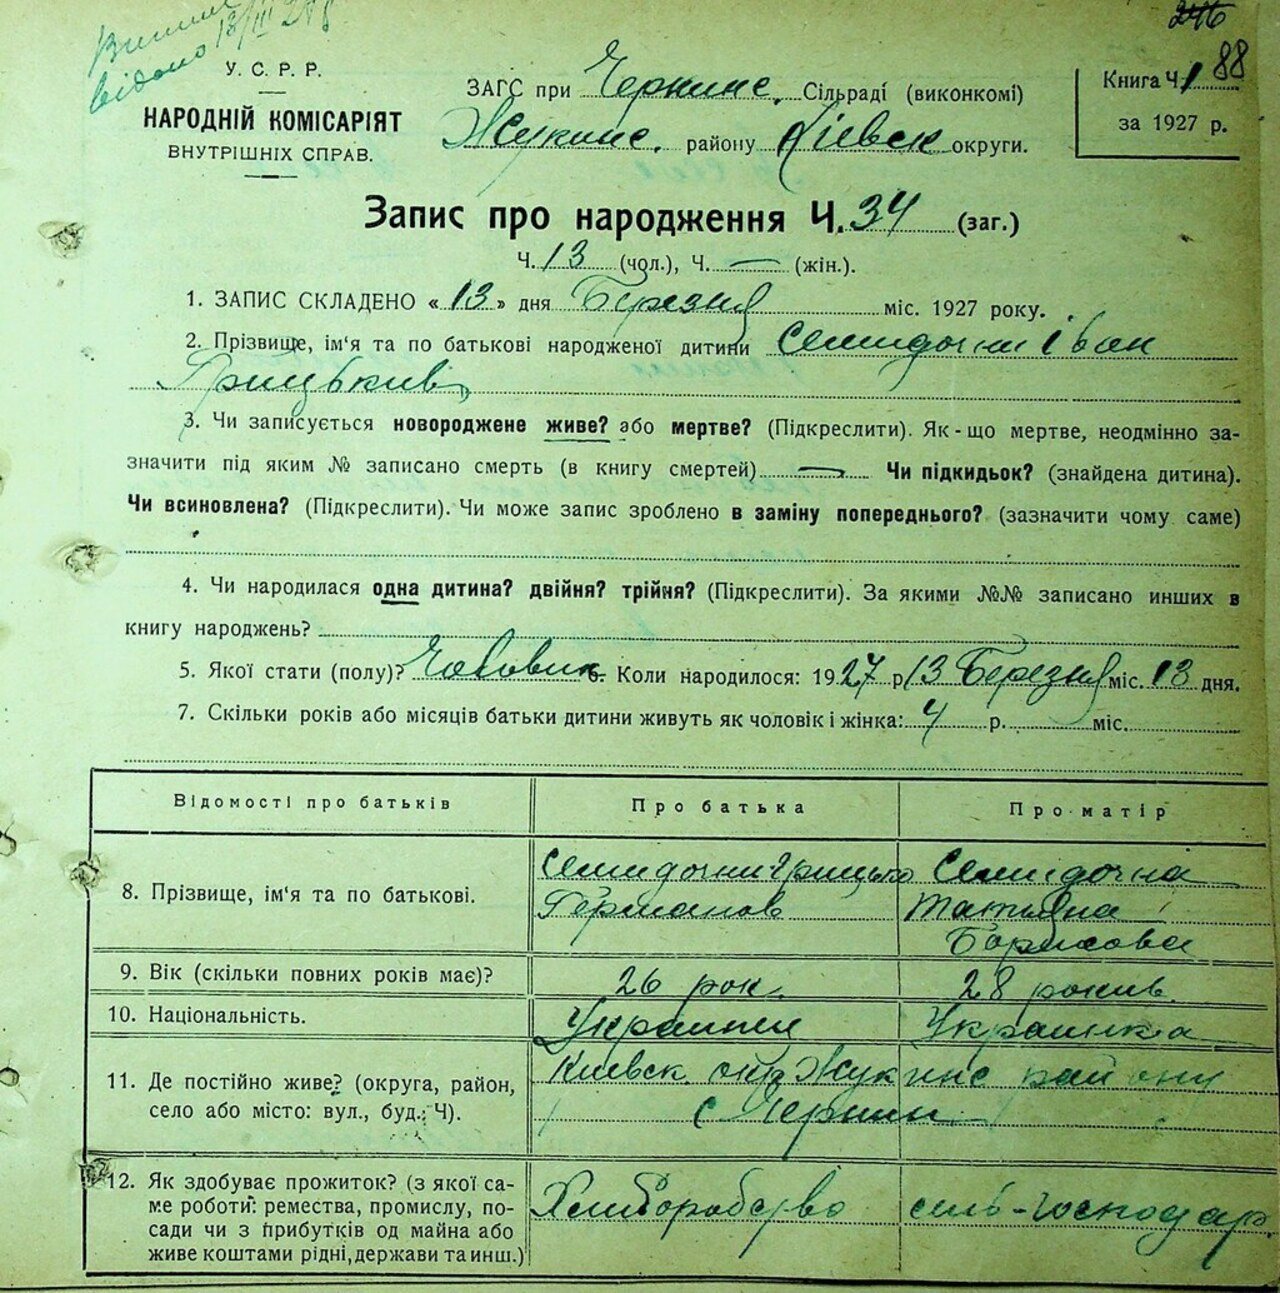 246
88
відано 13/III
У. С. Р. Р.
НАРОДНІЙ КОМІСАРІЯТ
ВНУТРІШНІХ СПРАВ.
ЗАГС при Чернинс. Сільраді (виконкомі)
Жукинс. району Київск округи.
Книга Ч. 1
за 1927 р.
Запис про народження Ч. 34 (заг.)
Ч. 13 (чол.), Ч. — (жін.).
1. ЗАПИС СКЛАДЕНО «13» дня Березня міс. 1927 року.
2. Прізвище, ім‘я та по батькові народженої дитини Семидочни Іван
Грицьків
3. Чи записується новороджене живе? або мертве? (Підкреслити). Як-що мертве, неодмінно за-
значити під яким № записано смерть (в книгу смертей) — Чи підкидьок? (знайдена дитина).
Чи всиновлена? (Підкреслити). Чи може запис зроблено в заміну попереднього? (зазначити чому саме)
4. Чи народилася одна дитина? двійня? трійня? (Підкреслити). За якими №№ записано инших в
книгу народжень?
5. Якої стати (полу)? Чоловик 6. Коли народилося: 1927 р 13 Березня міс. 13 дня.
7. Скільки років або місяців батьки дитини живуть як чоловік і жінка: 4 р. міс.
Відомості про батьків
Про батька
Про матір
8. Прізвище, ім‘я та по батькові.
Семидочни Грицько
Германов
Семидочна
Татьяна
Борисова
9. Вік (скільки повних років має)?
26 рок.
28 рокив.
10. Національність.
Украинец
Украинка
11. Де постійно живе? (округа, район,
село або місто: вул., буд., Ч).
Киевск. окр Жукинс району
с Чернин
12. Як здобуває прожиток? (з якої са-
ме роботи: ремества, промислу, по-
сади чи з прибутків од майна або
живе коштами рідні, держави та инш.)
Хлиборобство
сель-господар.